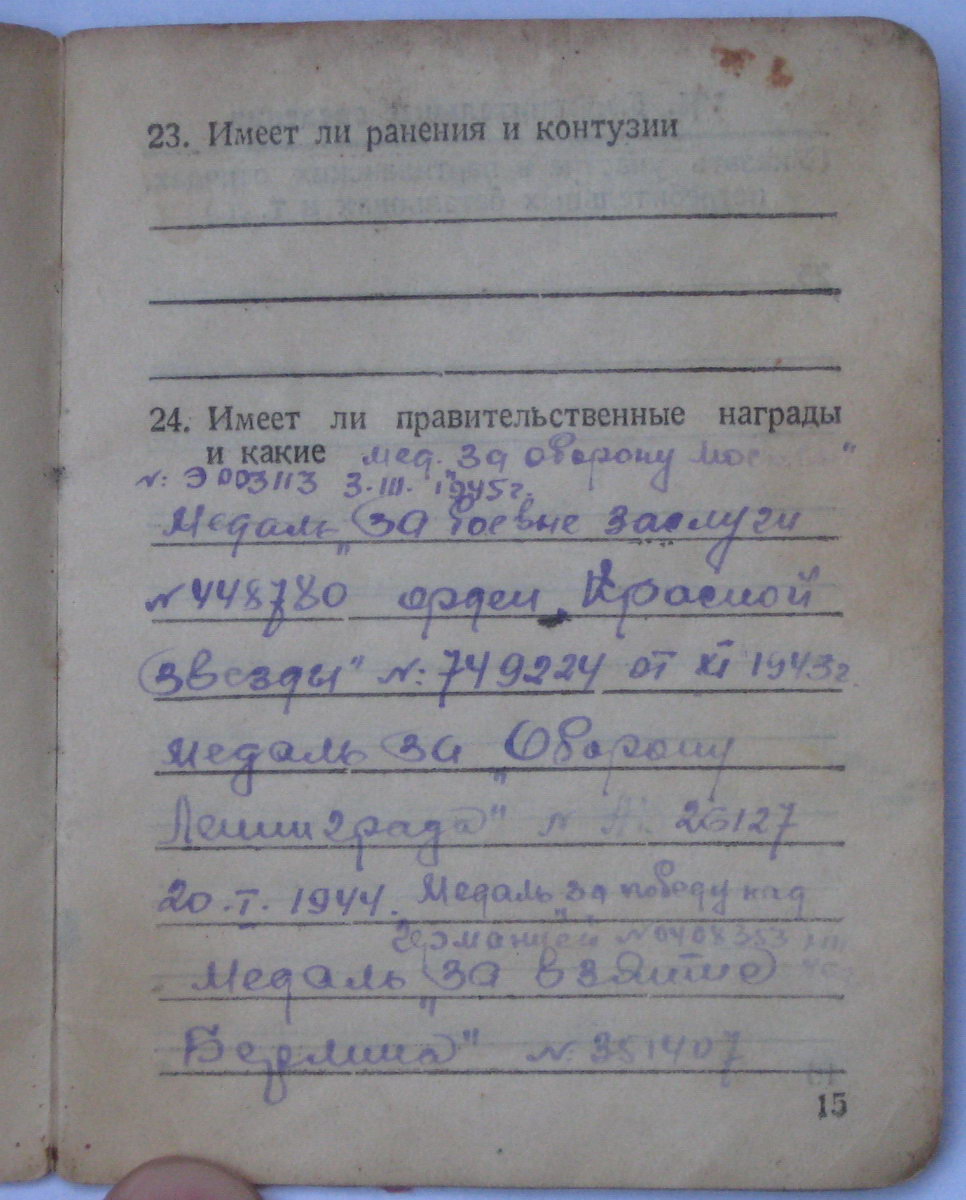 23. Имеет ли ранения и контузии
24. Имеет ли правительственные награды
и какие мед. за оборону
№: Э 003113 3.III. 1945г.
Медаль „За боевые заслуги
№ 448780 орден „Красной
Звезды" №: 749224 от XI 1943г.
Медаль За „Оборону
Ленинграда" № 26127
20.I. 1944. Медаль за победу над
Германией № 0408353
Медаль „За взятие
Берлина" №: 381407
15